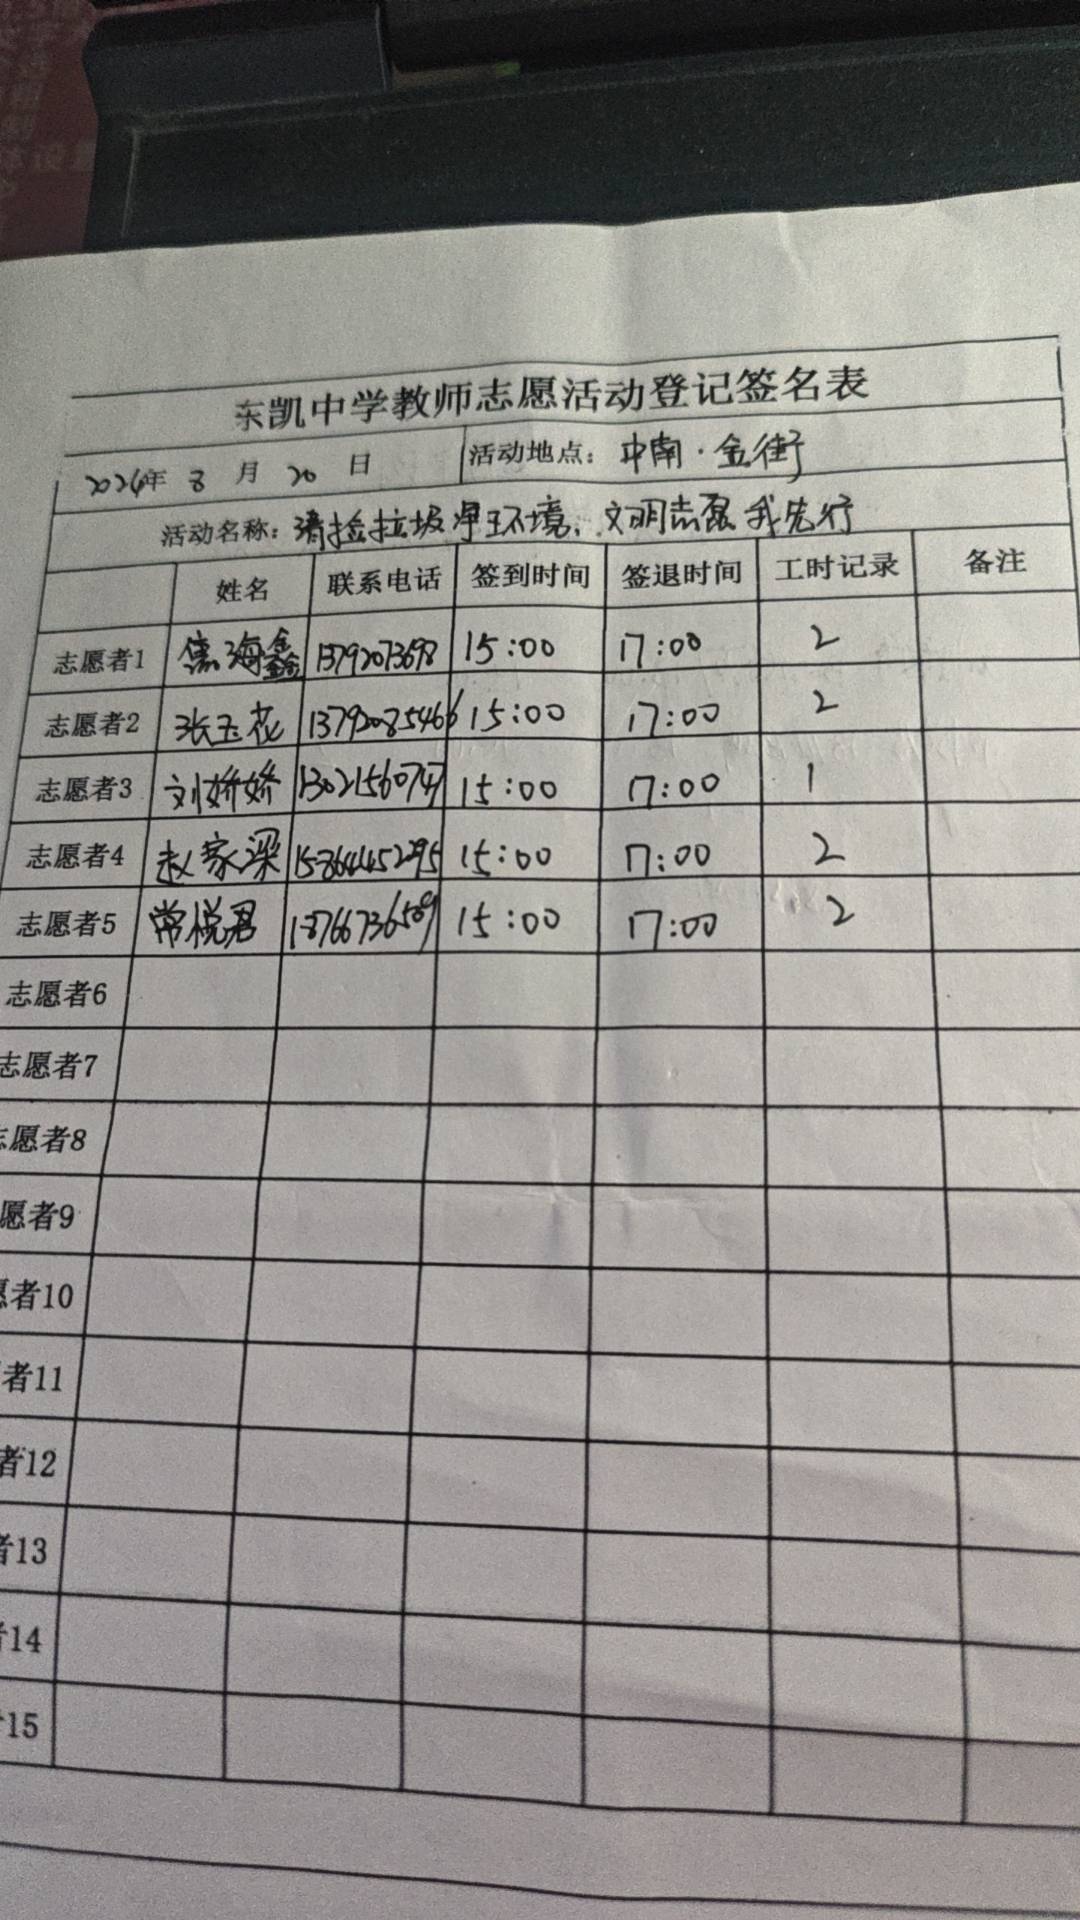 东凯中学教师志愿活动登记签名表
2024年 8 月 20 日 活动地点：中南·金街
活动名称：清捡垃圾净环境，文明志愿我先行
姓名 联系电话 签到时间 签退时间 工时记录 备注
志愿者1 焦海鑫 13792073698 15:00 17:00 2
志愿者2 张玉花 13792085466 15:00 17:00 2
志愿者3 刘娇娇 15:00 17:00 1
志愿者4 赵家梁 15864452295 15:00 17:00 2
志愿者5 常悦君 18766736589 15:00 17:00 2
志愿者6
志愿者7
志愿者8
愿者9
愿者10
者11
者12
者13
者14
15